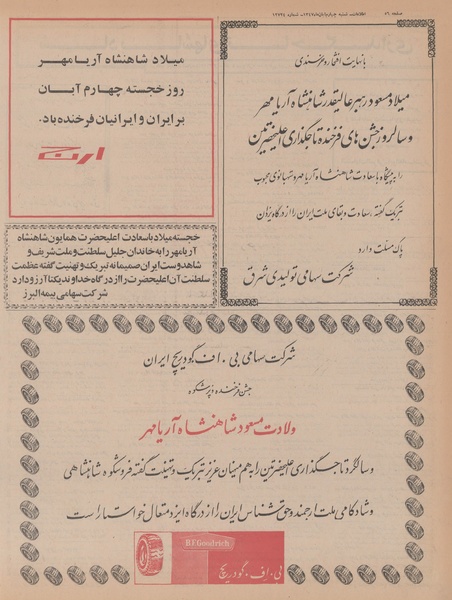 صفحه ۵۹
اطلاعات شنبه چهارم آبان ماه ۱۳۴۷ - شماره
با نهایت افتخار و خرسندی
میلاد مسعود رهبر عالیقدر شاهنشاه آریا مهر
و سالروز جشن های فرخنده تاجگذاری اعلیحضرتین
را به پیشگاه با سعادت شاهنشاه آریا مهر و شهبانوی محبوب
تبریک گفته سعادت و بقای ملت ایران را از درگاه یزدان
پاک مسئلت دارد
شرکت سهامی تولیدی شرق
میلاد شاهنشاه آریا مهر
روز خجسته چهارم آبان
بر ایران و ایرانیان فرخنده باد.
ارج
خجسته میلاد باسعادت اعلیحضرت همایون شاهنشاه
آریامهر را به خاندان جلیل سلطنت و ملت شریف و
شاهدوست ایران صمیمانه تبریک و تهنیت گفته عظمت
سلطنت آن اعلیحضرت را از درگاه خداوند یکتا آرزو دارد
شرکت سهامی بیمه البرز
شرکت سهامی بی . اف . گودریچ ایران
جشن فرخنده و پرشکوه
ولادت مسعود شاهنشاه آریا مهر
و سالگرد تاجگذاری اعلیحضرتین را به هم میهنان عزیز تبریک و تهنیت گفته فر و شکوه شاهنشاهی
و شادکامی ملت ارجمند و حق شناس ایران را از درگاه ایزد متعال خواستار است
B.F.Goodrich
بی . اف . گودریچ